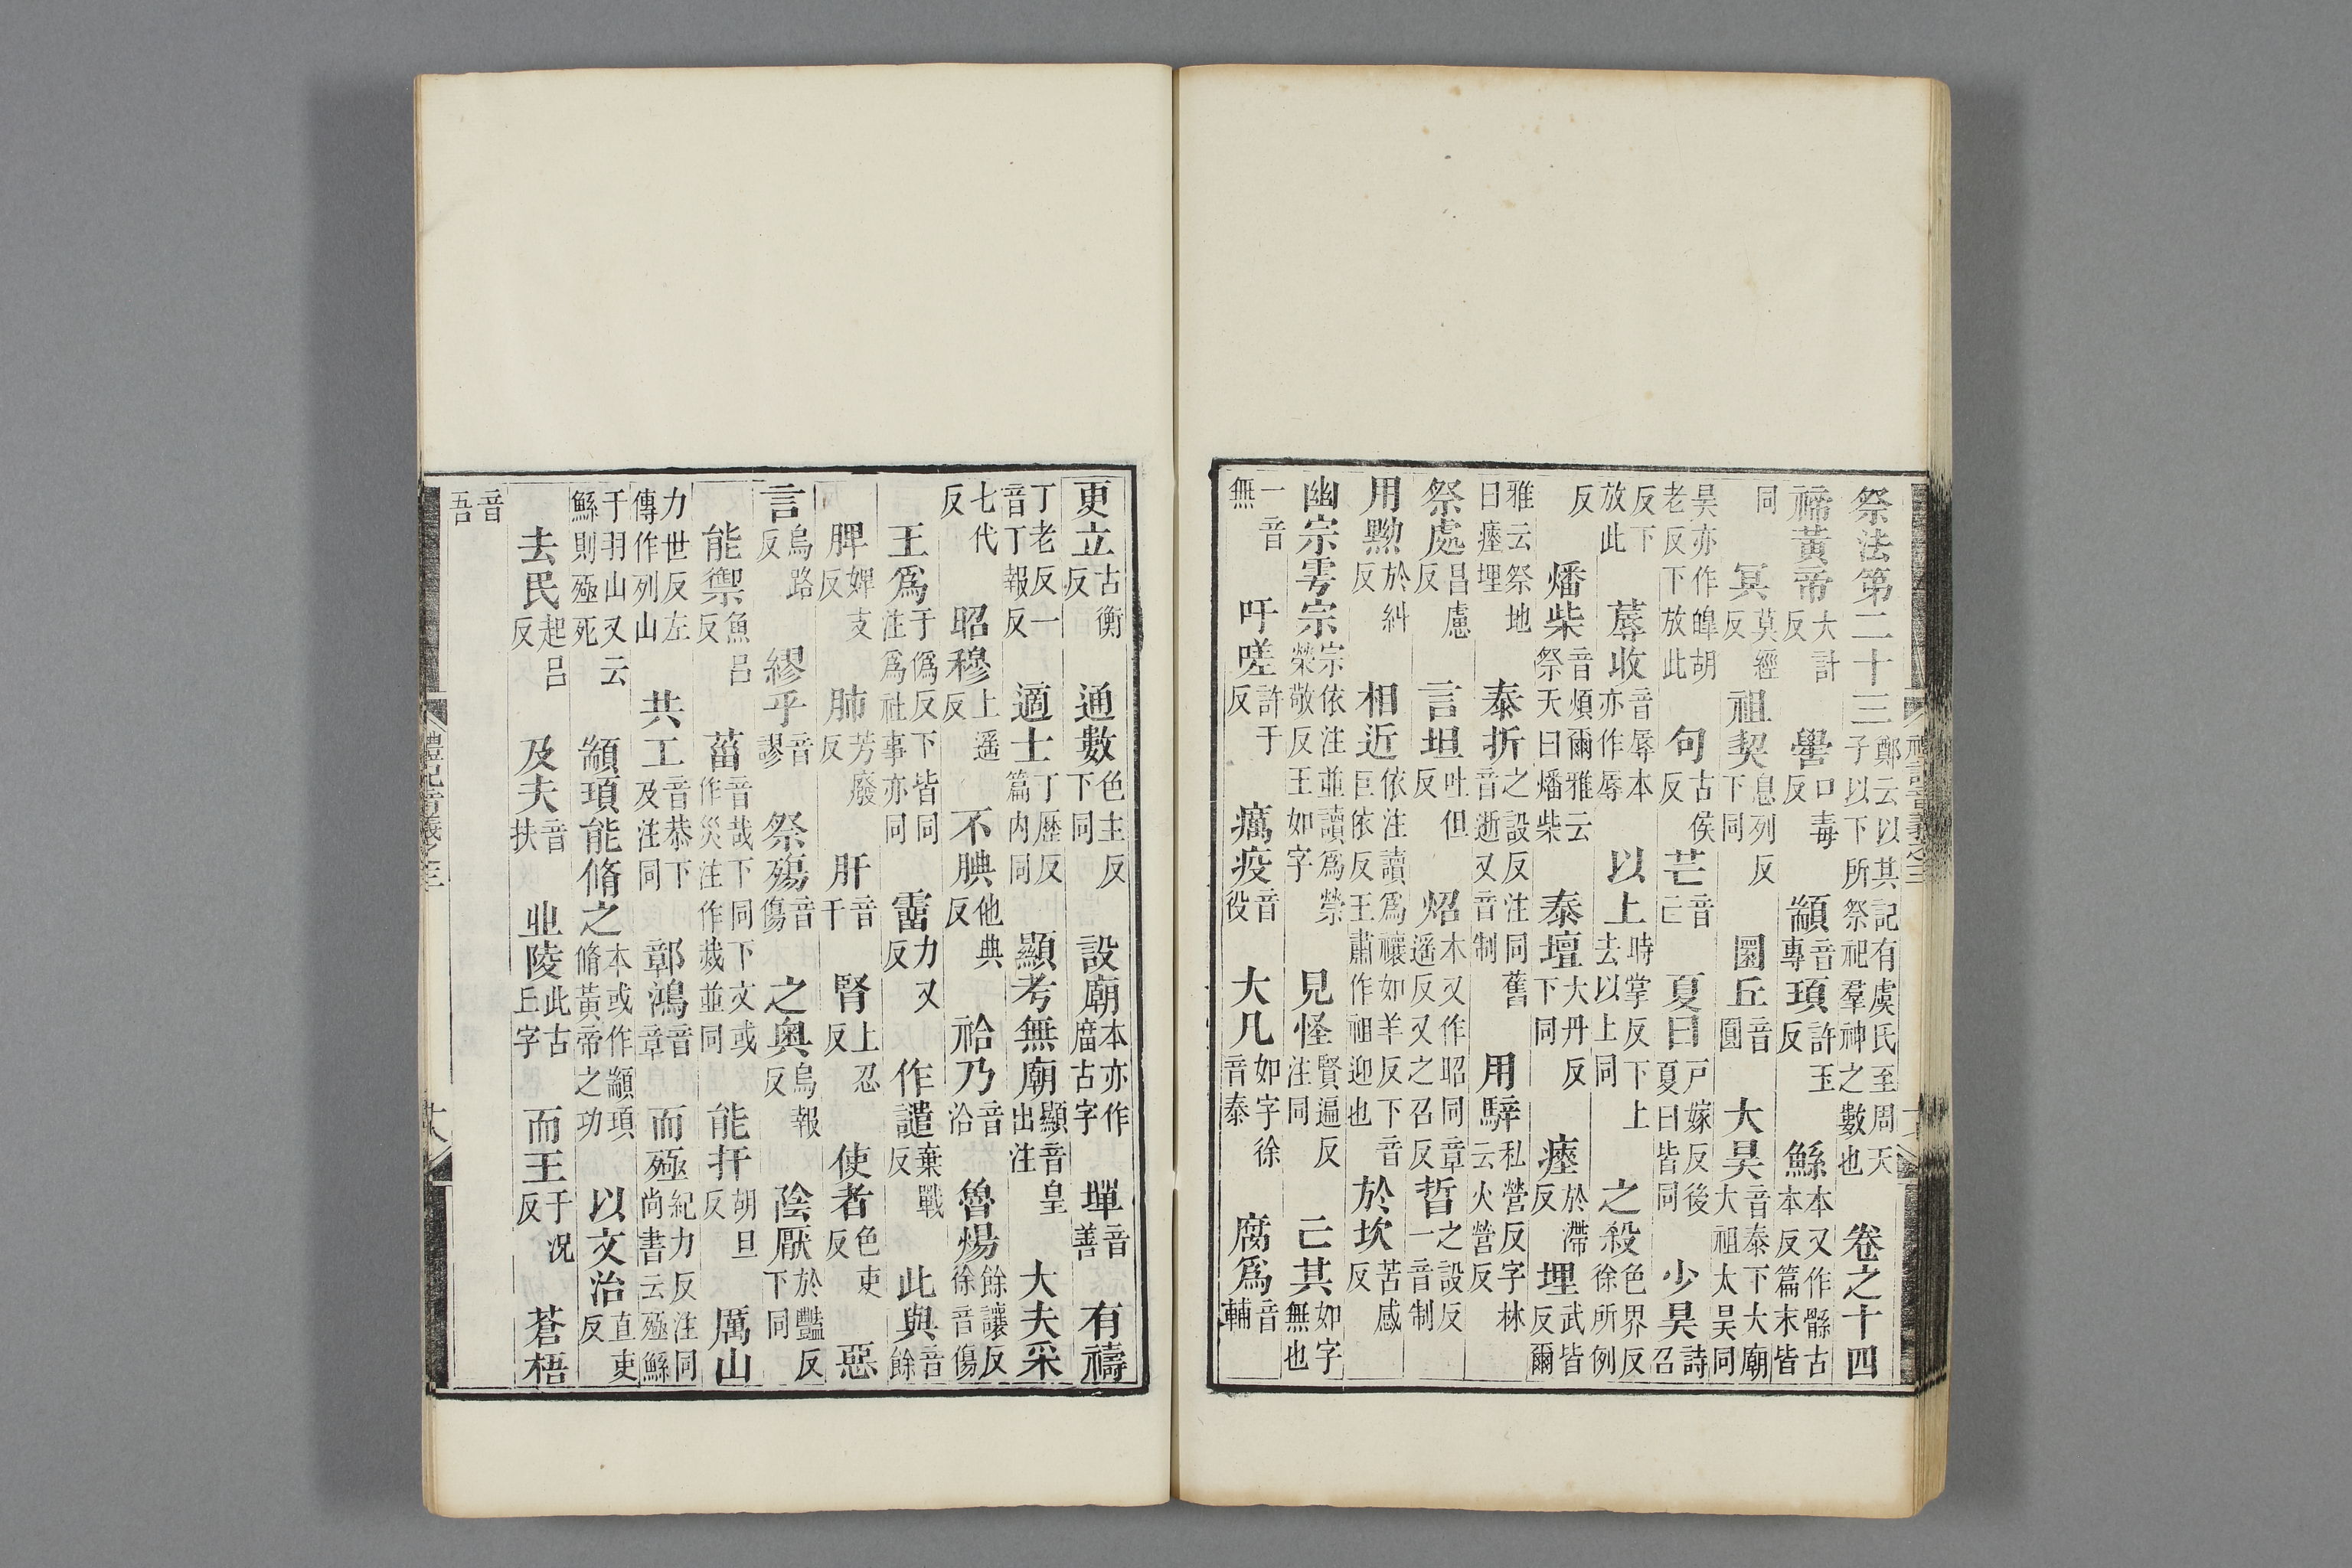 祭法第二十三鄭云以其記有虞氏至周天子以下所祭祀羣神之數也卷之十四
禘黃帝大計反嚳口毒反顓音專頊許玉反鯀本又作骸古本反篇末皆
同冥莫經反祖契息列反下同圜丘音圓大昊音泰下大廟大祖太昊同
昊亦作皥胡老反下放此句古侯反芒音亡夏曰戶嫁反後夏曰皆同少昊詩召
反下放此蓐收音辱本亦作辱以上時掌反下上去以上同之殺色界反徐所例
反燔柴音煩爾雅云祭天曰燔柴泰壇大丹反下同瘞於滯反埋武皆反爾
雅云祭地曰瘞埋泰折之設反注同舊音逝又音制用騂私營反字林云火營反
祭處昌慮反言坦吐但反炤木又作昭同章遙反又之召反晢之設反一音制
用黝於糾反相近依注讀爲禳如羊反下音巨依反王肅作祖迎也於坎苦感反
幽宗雩宗宗依注並讀爲禜榮敬反王如字見怪賢遍反注同亡其如字無也
一音無吁嗟許于反癘疫音役大凡如字徐音泰腐爲音輔
禮記音義之三
更立古衡反通數色主反下同設廟本亦作庿古字墠音善有禱
丁老反一音丁報反適士丁歷反篇内同顯考無廟顯音皇出注大夫采
七代反昭穆上遥反不腆他典反祫乃音洽魯煬餘讓反徐音傷
王爲于僞反下皆同注爲社事亦同霤力又反作譴棄戰反此與音餘
脾婢支反肺芳廢反肝音干腎上忍反使者色吏反惡
言烏路反繆乎音謬祭殤音傷之奥烏報反陰厭於豔反下同
能禦魚吕反菑音哉下同下文或作災注作烖並同能扞胡旦反厲山
力世反左傳作列山共工音恭下及注同鄣鴻音章而殛紀力反注同尚書云殛鯀
于羽山又云鯀則殛死顓頊能脩之本或作顓頊脩黃帝之功以文治直吏反
去民起吕反及夫音扶丠陵此古丘字而王于况反蒼梧
音吾
禮記音義之三 十八